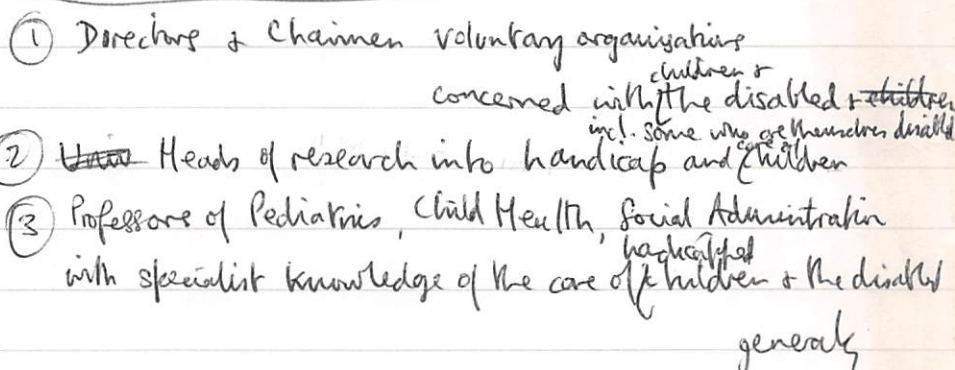 ① Directors & Chairmen voluntary organisations
children &
concerned with the disabled & children
incl. some who are themselves disabled
② Univ Heads of research into handicap and care of children
③ Professors of Pediatrics, Child Health, Social Administration
handicapped
with specialist knowledge of the care of children & the disabled
generally